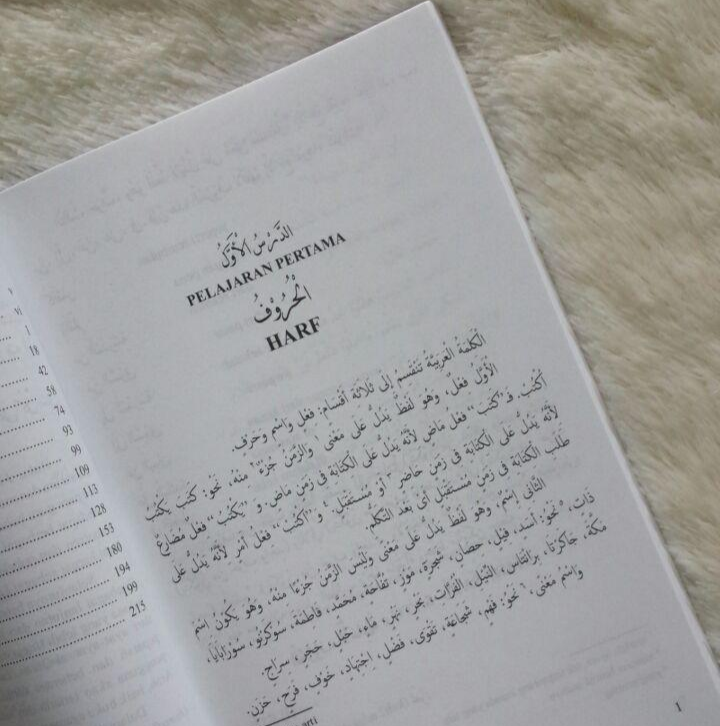 الدَّرْسُ الْأَوَّلُ
PELAJARAN PERTAMA
الْحُرُوْفُ
HARF
الْكَلِمَةُ الْعَرَبِيَّةُ تَنْقَسِمُ إِلَى ثَلَاثَةِ أَقْسَامٍ: فِعْلٍ وَاسْمٍ وَحَرْفٍ.
الْأَوَّلُ فِعْلٌ، وَهُوَ لَفْظٌ يَدُلُّ عَلَى مَعْنًى وَالزَّمَنُ جُزْءٌ مِنْهُ، نَحْوُ: كَتَبَ يَكْتُبُ
اُكْتُبْ. فَـ"كَتَبَ" فِعْلٌ مَاضٍ لِأَنَّهُ يَدُلُّ عَلَى الْكِتَابَةِ فِى زَمَنٍ مَاضٍ. وَ"يَكْتُبُ" فِعْلٌ مُضَارِعٌ
لِأَنَّهُ يَدُلُّ عَلَى الْكِتَابَةِ فِى زَمَنٍ حَاضِرٍ أَوْ مُسْتَقْبَلٍ. وَ"اُكْتُبْ" فِعْلُ أَمْرٍ لِأَنَّهُ يَدُلُّ عَلَى
طَلَبِ الْكِتَابَةِ فِى زَمَنٍ مُسْتَقْبَلٍ أَىْ بَعْدَ التَّكَلُّمِ.
الثَّانِى اِسْمٌ، وَهُوَ لَفْظٌ يَدُلُّ عَلَى مَعْنًى وَلَيْسَ الزَّمَنُ جُزْءًا مِنْهُ، وَهُوَ يَكُوْنُ اِسْمَ
ذَاتٍ، نَحْوُ: أَسَدٍ، فِيْلٍ، حِصَانٍ، شَجَرَةٍ، مَوْزٍ، تُفَّاحَةٍ، مُحَمَّدٍ، فَاطِمَةَ، سُوْكَرْنُوْ، سُوْرَابَايَا،
مَكَّةَ، جَاكَرْتَا، بِرَانْتَاسَ، النِّيْلِ، الْفُرَاتِ، بَحْرٍ، نَهْرٍ، مَاءٍ، جَبَلٍ، حَجَرٍ، سِرَاجٍ.
وَاسْمَ مَعْنًى، نَحْوُ: فَهْمٍ، شَجَاعَةٍ، تَقْوَى، فَضْلٍ، اِجْتِهَادٍ، خَوْفٍ، فَرَحٍ، حَزَنٍ.
1
v
vi
1
18
42
58
74
93
99
109
113
128
153
180
194
199
215